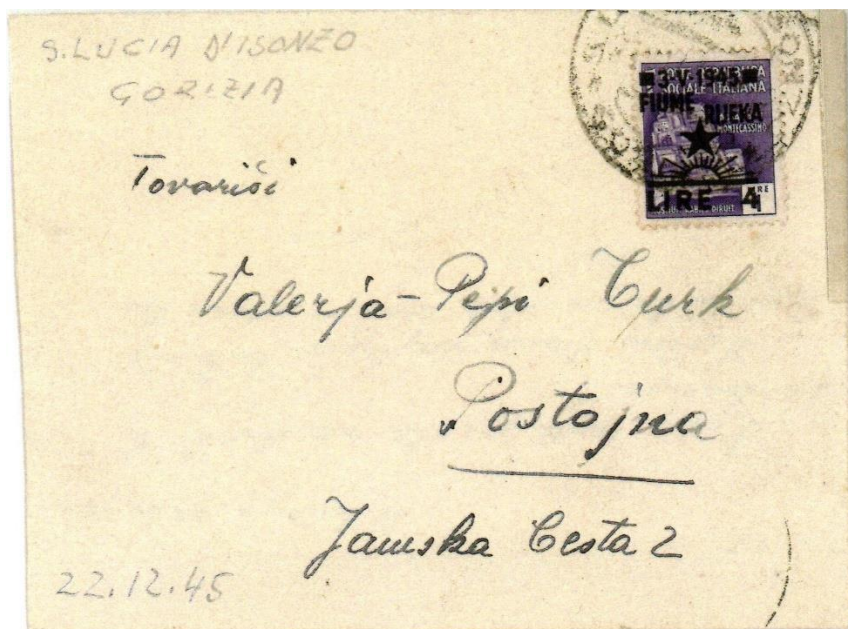 S. LUCIA D'ISONZO
GORIZIA
3-V-1945
SOCIALE ITALIANA
FIUME RIJEKA
MONTECASSINO
LIRE 4
Tovariši
Valerja-Pepi Turk
Postojna
Jamska Cesta 2
22.12.45